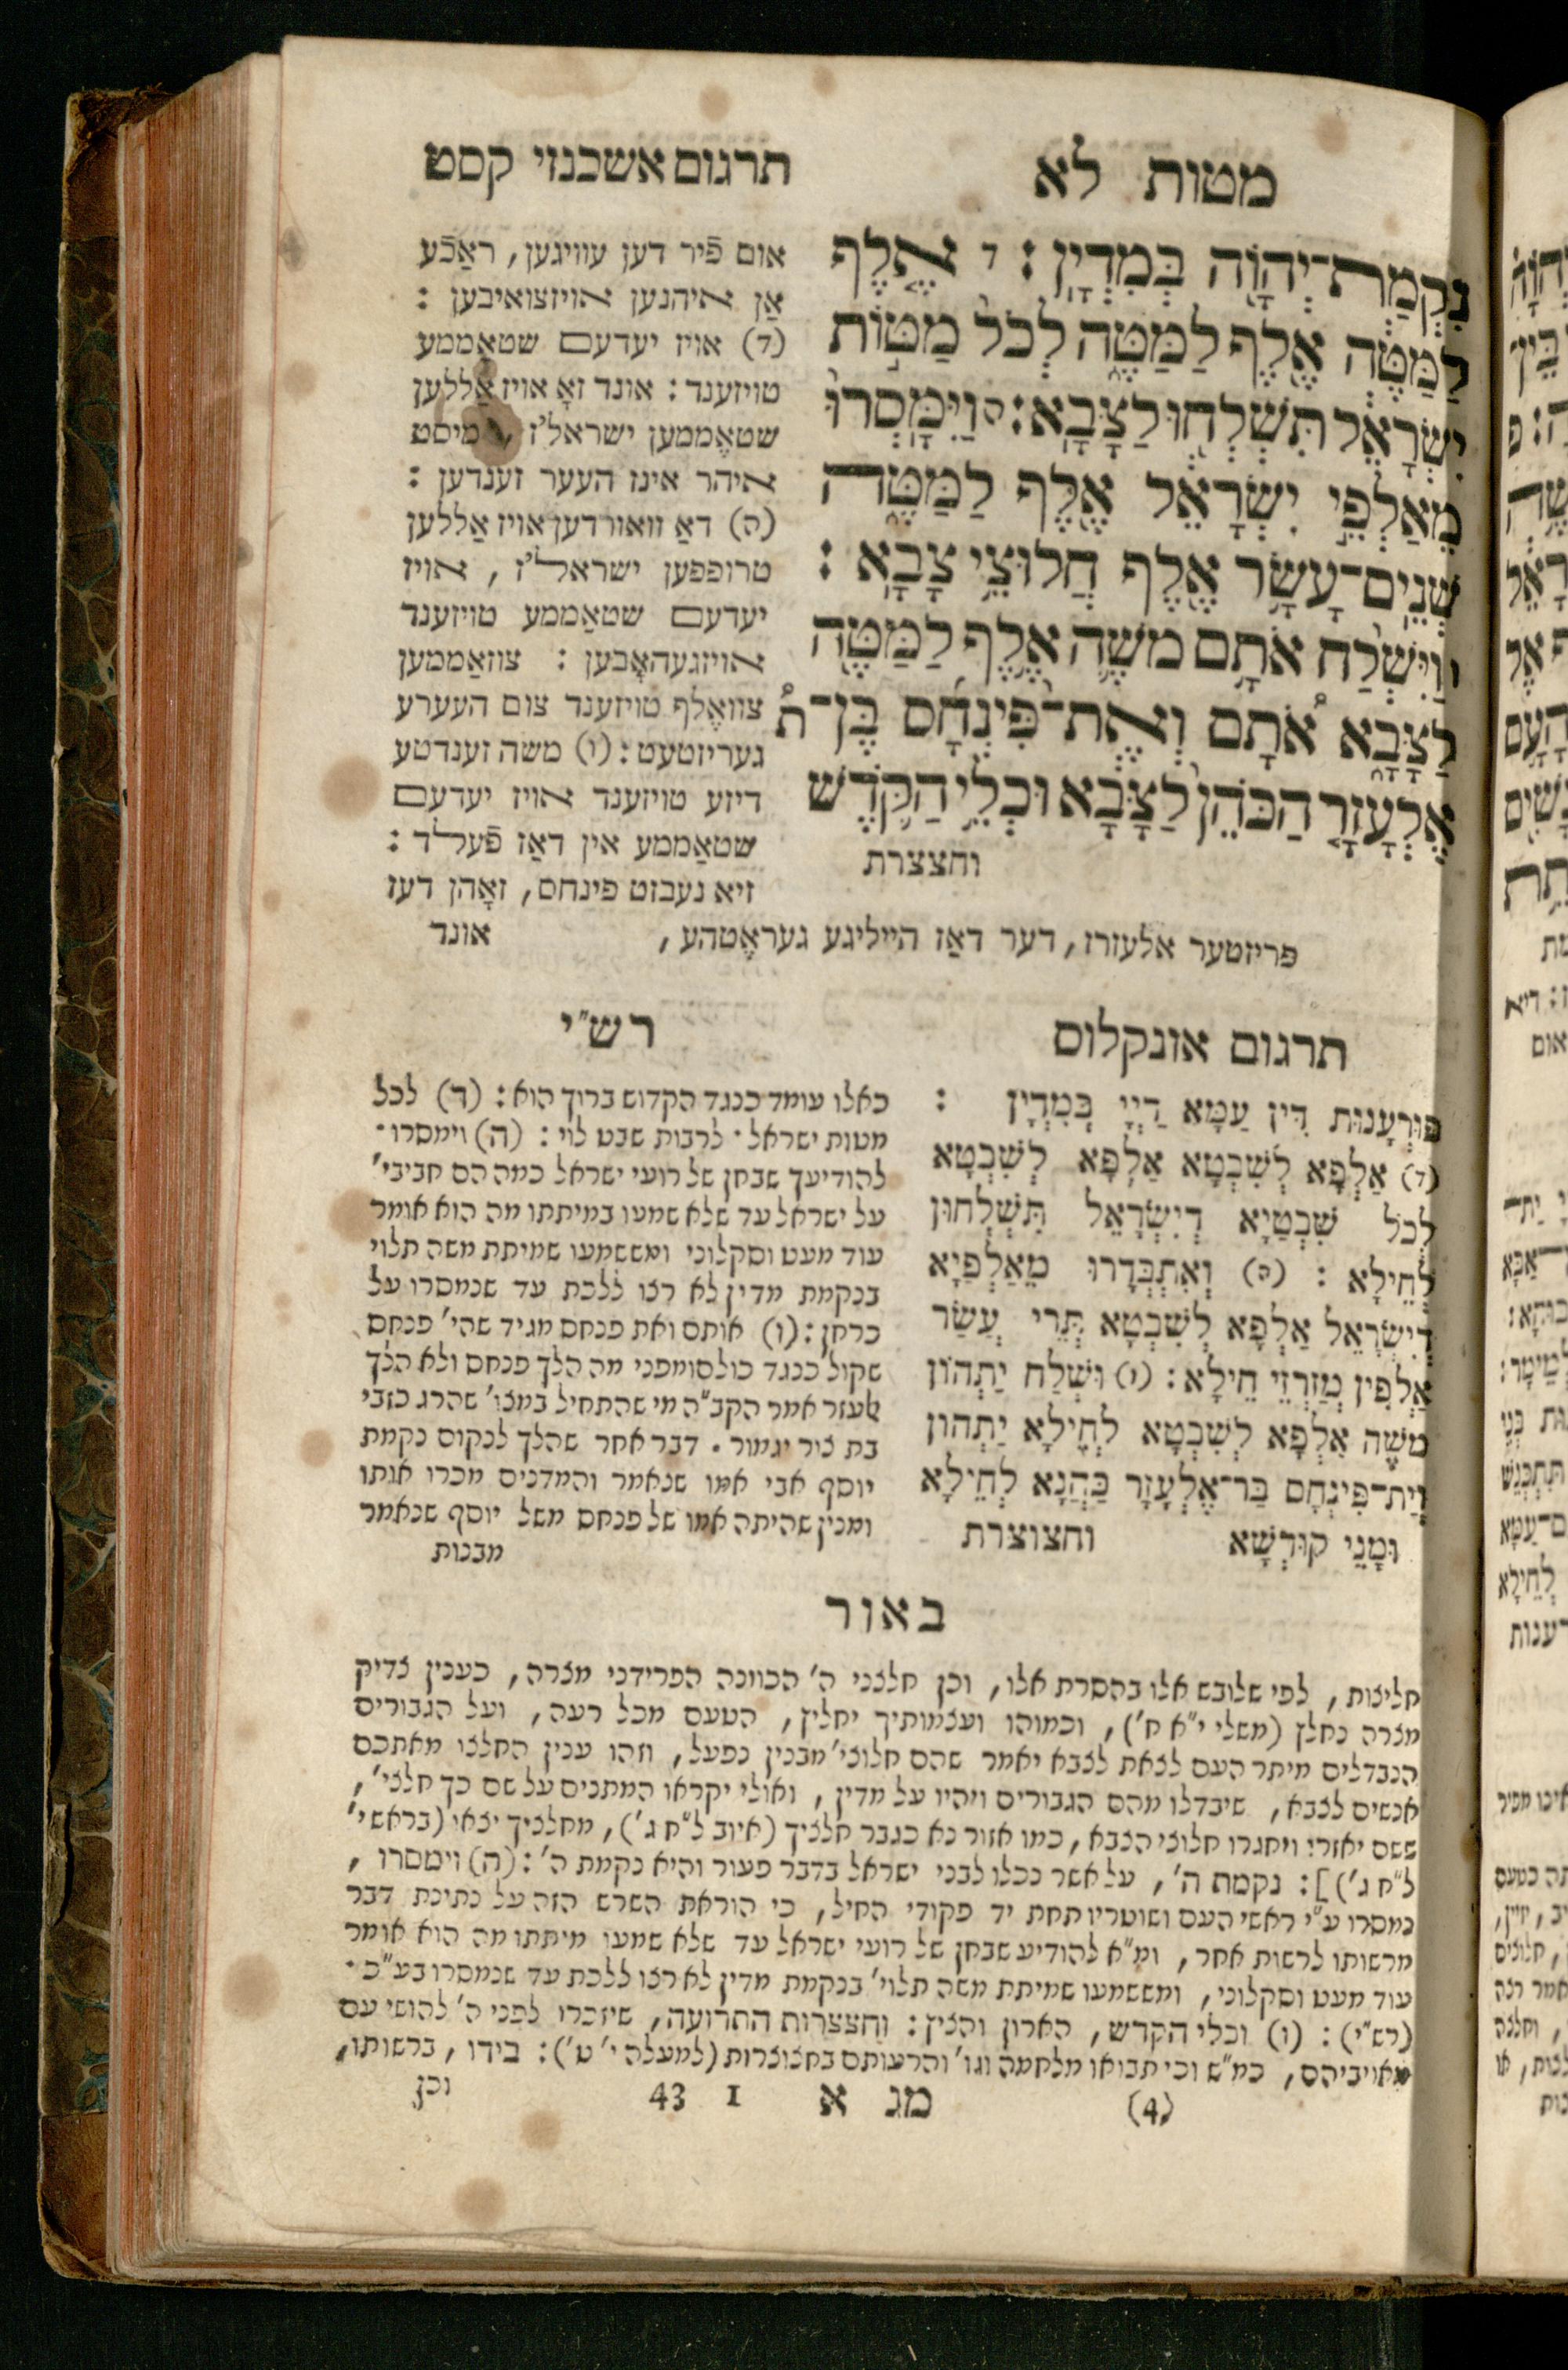 מטות לא
תרגום אשכנזי קסט
נִקְמַת־יְהוָה בְּמִדְיָן : ד אֶלֶף
לַמַּטֶּה אֶלֶף לַמַּטֶּה לְכֹל מַטּוֹת
יִשְׂרָאֵל תִּשְׁלְחוּ לַצָּבָא : ה וַיִּמָּסְרוּ
מֵאַלְפֵי יִשְׂרָאֵל אֶלֶף לַמַּטֶּה
שְׁנֵים־עָשָׂר אֶלֶף חֲלוּצֵי צָבָא :
ו וַיִּשְׁלַח אֹתָם מֹשֶׁה אֶלֶף לַמַּטֶּה
לַצָּבָא אֹתָם וְאֶת־פִּינְחָס בֶּן־
אֶלְעָזָר הַכֹּהֵן לַצָּבָא וּכְלֵי הַקֹּדֶשׁ
וחצצרת
אום פֿיר דען עוויגען, ראַכֿע
אַן איהנען אויזצואיבען :
(ד) אויז יעדעם שטאַממע
טויזענד : אונד זאָ אויז אַללען
שטאֶממען ישראל'ז, מיסט
איהר אינז העער זענדען :
(ה) דאַ וואורדען אויז אַללען
טרופפען ישראל'ז, אויז
יעדעם שטאַממע טויזענד
אויזגעהאָבען : צוזאַממען
צוואֶלף טויזענד צום העערע
געריזטעט : (ו) משה זענדטע
דיזע טויזענד אויז יעדעם
שטאַממע אין דאַז פֿעלד :
זיא נעבזט פינחס, זאָהן דעז
פריזטער אלעזרז, דער דאַז הייליגע געראֶטהע, אונד
תרגום אונקלוס
פּוּרְעָנוּת דִּין עַמָּא דַיְיָ בְּמִדְיָן :
(ד) אַלְפָא לְשִׁבְטָא אַלְפָא לְשִׁבְטָא
לְכֹל שִׁבְטַיָא דְיִשְׂרָאֵל תִּשְׁלְחוּן
לְחֵילָא : (ה) וְאִתְבְּדָרוּ מֵאַלְפַיָא
דְיִשְׂרָאֵל אַלְפָא לְשִׁבְטָא תְּרֵי עֲשַׂר
אַלְפִין מְזַרְזֵי חֵילָא : (ו) וּשְׁלַח יַתְהוֹן
מֹשֶׁה אַלְפָא לְשִׁבְטָא לְחֵילָא יַתְהוֹן
וְיַת־פִּינְחָס בַּר־אֶלְעָזָר כַּהֲנָא לְחֵילָא
וּמָנֵי קוּדְשָׁא וחצוצרת
רש"י
כאלו עומד כנגד הקדוש ברוך הוא : (ד) לכל
מטות ישראל · לרבות שבט לוי : (ה) וימסרו ·
להודיעך שבחן של רועי ישראל כמה הם חביבי'
על ישראל עד שלא שמעו במיתתו מה הוא אומר
עוד מעט וסקלוני ומששמעו שמיתת משה תלוי
בנקמת מדין לא רצו ללכת עד שנמסרו על
כרחן : (ו) אותם ואת פנחס מגיד שהי' פנחס
שקול כנגד כולם ומפני מה הלך פנחס ולא הלך
אלעזר אמר הקב"ה מי שהתחיל במצו' שהרג כזבי
בת צור יגמור . דבר אחר שהלך לנקום נקמת
יוסף אבי אמו שנאמר והמדנים מכרו אותו
ומנין שהיתה אמו של פנחס משל יוסף שנאמר
מבנות
באור
חליצות, לפי שלובש אלו בהסרת אלו, וכן חלצני ה' הכוונה הפרידני מצרה, כענין צדיק
מצרה נחלץ (משלי י"א ח'), וכמוהו ועצמותיך יחליץ, הטעם מכל רעה, ועל הגבורים
הנבדלים מיתר העם לצאת לצבא יאמר שהם חלוצי' מבנין נפעל, וזהו ענין החלצו מאתכם
אנשים לצבא, שיבדלו מהם הגבורים ויהיו על מדין, ואולי יקראו המתנים על שם כך חלצי',
ששם יאזרו ויחגרו חלוצי הצבא, כמו אזור נא כגבר חלציך (איוב ל"ח ג'), מחלציך יצאו (בראשי'
ל"ח ג')] : נקמת ה', על אשר נכלו לבני ישראל בדבר פעור והיא נקמת ה' : (ה) וימסרו,
נמסרו ע"י ראשי העם ושוטריו תחת יד פקודי החיל, כי הוראת השרש הזה על נתינת דבר
מרשותו לרשות אחר, ומ"א להודיע שבחן של רועי ישראל עד שלא שמעו מיתתו מה הוא אומר
עוד מעט וסקלוני, ומששמעו שמיתת משה תלוי' בנקמת מדין לא רצו ללכת עד שנמסרו בע"כ ·
(רש"י) : (ו) וכלי הקדש, הארון והציץ : וחצצרות התרועה, שיזכרו לפני ה' להושיעם
מאויביהם, כמ"ש וכי תבואו מלחמה וגו' והרעותם בחצוצרות (למעלה י' ט') : בידו, ברשותו,
וכן
(4) מג א 1 43